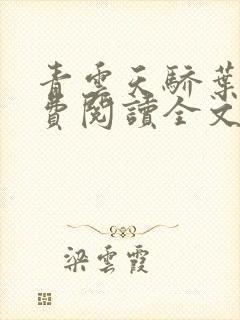 青雲天驕葉
費閱讀全文
梁雲霞